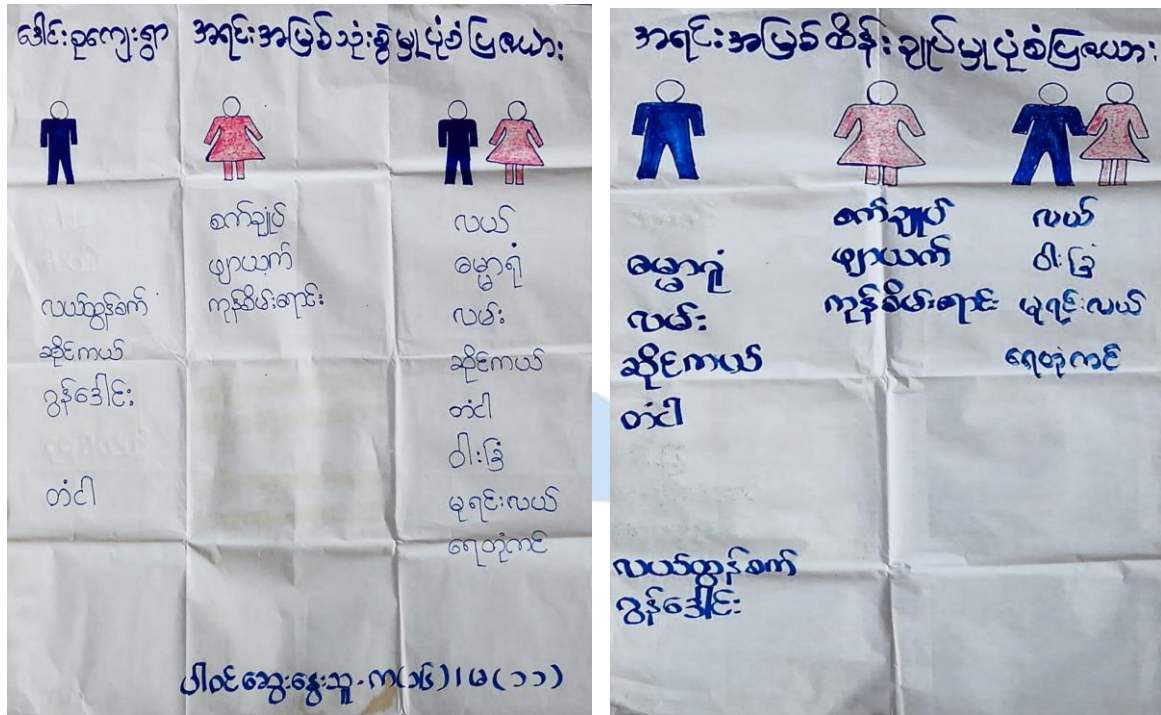 ဒေါင်းခုကျေးရွာ အရင်းအမြစ်သုံးစွဲမှုပုံစံပြဇယား
လယ်ထွန်စက်
ဆိုင်ကယ်
ဂွန်ဒေါင်း
တံငါ
စက်ချုပ်
ဖျာယက်
ကုန်စိမ်းရောင်း
လယ်
ဓမ္မာရုံ
လမ်း
ဆိုင်ကယ်
တံငါ
ဝါးခြံ
မုရင်းလယ်
ရေတုံကင်
ပါဝင်ဆွေးနွေးသူ-ကျ(၁၆)၊မ(၁၁)
အရင်းအမြစ်ထိန်းချုပ်မှုပုံစံပြဇယား
ဓမ္မာရုံ
လမ်း
ဆိုင်ကယ်
တံငါ
လယ်ထွန်စက်
ဂွန်ဒေါင်း
စက်ချုပ်
ဖျာယက်
ကုန်စိမ်းရောင်း
လယ်
ဝါးခြံ
မုရင်းလယ်
ရေတုံကင်